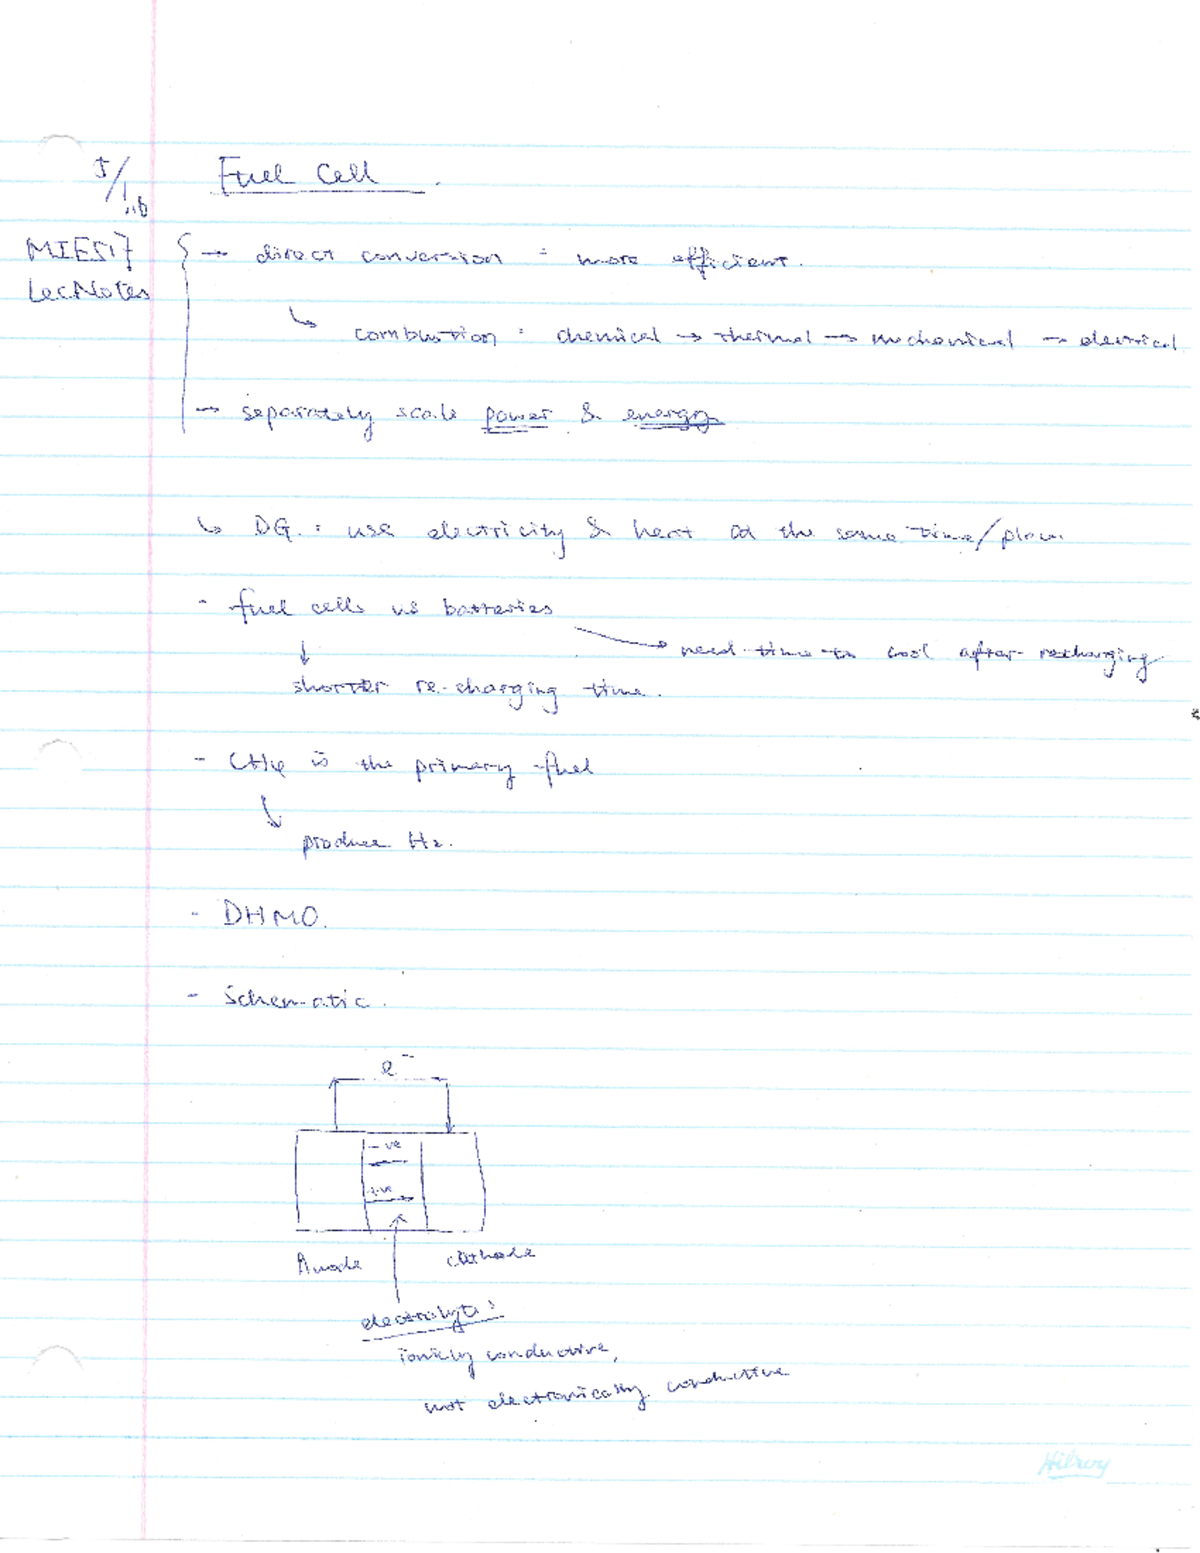 Fuel Cell.
MIE517
Lec Notes
→ direct conversion : more efficient.
↳ combustion : chemical → thermal → mechanical → electrical
→ separately scale power & energy
↳ DG. : use electricity & heat at the same time/place
- fuel cells vs batteries
→ need time to cool after recharging
↓
shorter re-charging time.
- CH4 is the primary fuel
↘
produce H2.
- DHMO.
- Schematic.
e⁻
-ve
+ve
Anode Cathode
electrolyte:
ionicly conductive,
not electronically conductive
Hilroy